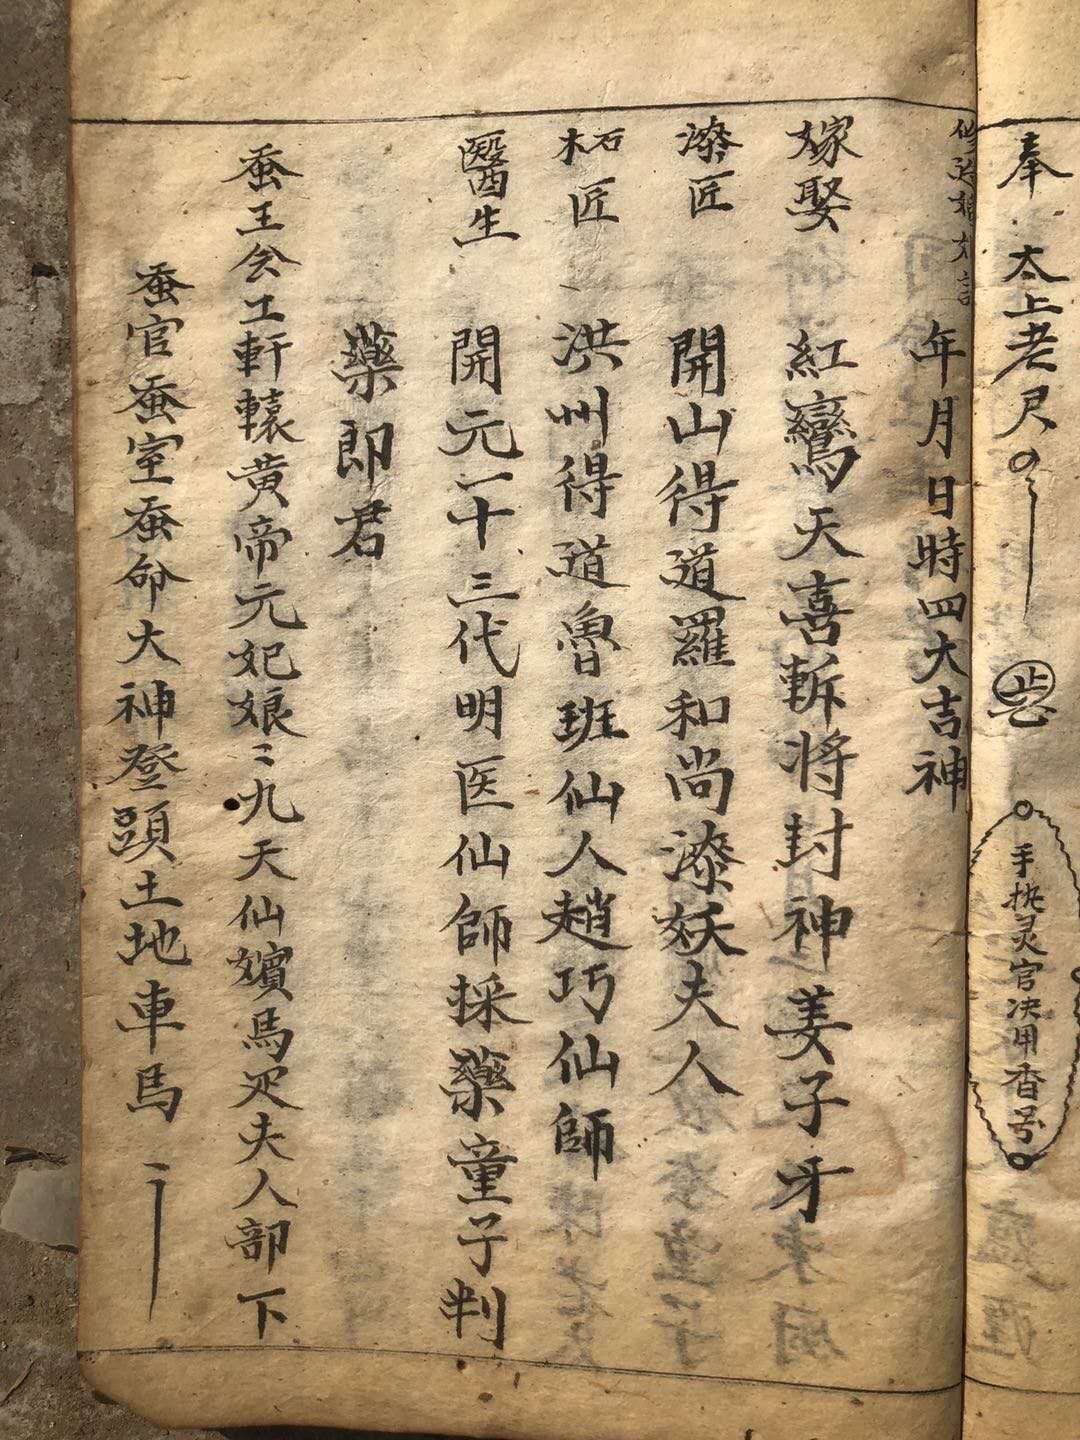 奉 太上老君
手执灵官决用香号
年月日時四大吉神
嫁娶 紅鸞天喜斬將封神姜子牙
漆匠 開山得道羅和尚漆妖夫人
木石匠 洪州得道魯班仙人趙巧仙師
醫生 開元一十三代明医仙師採藥童子判
藥郎君
蚕王会工軒轅黄帝元妃娘〻九天仙嬪馬
夫人部下
蚕官蚕室蚕命大神登頭土地車馬